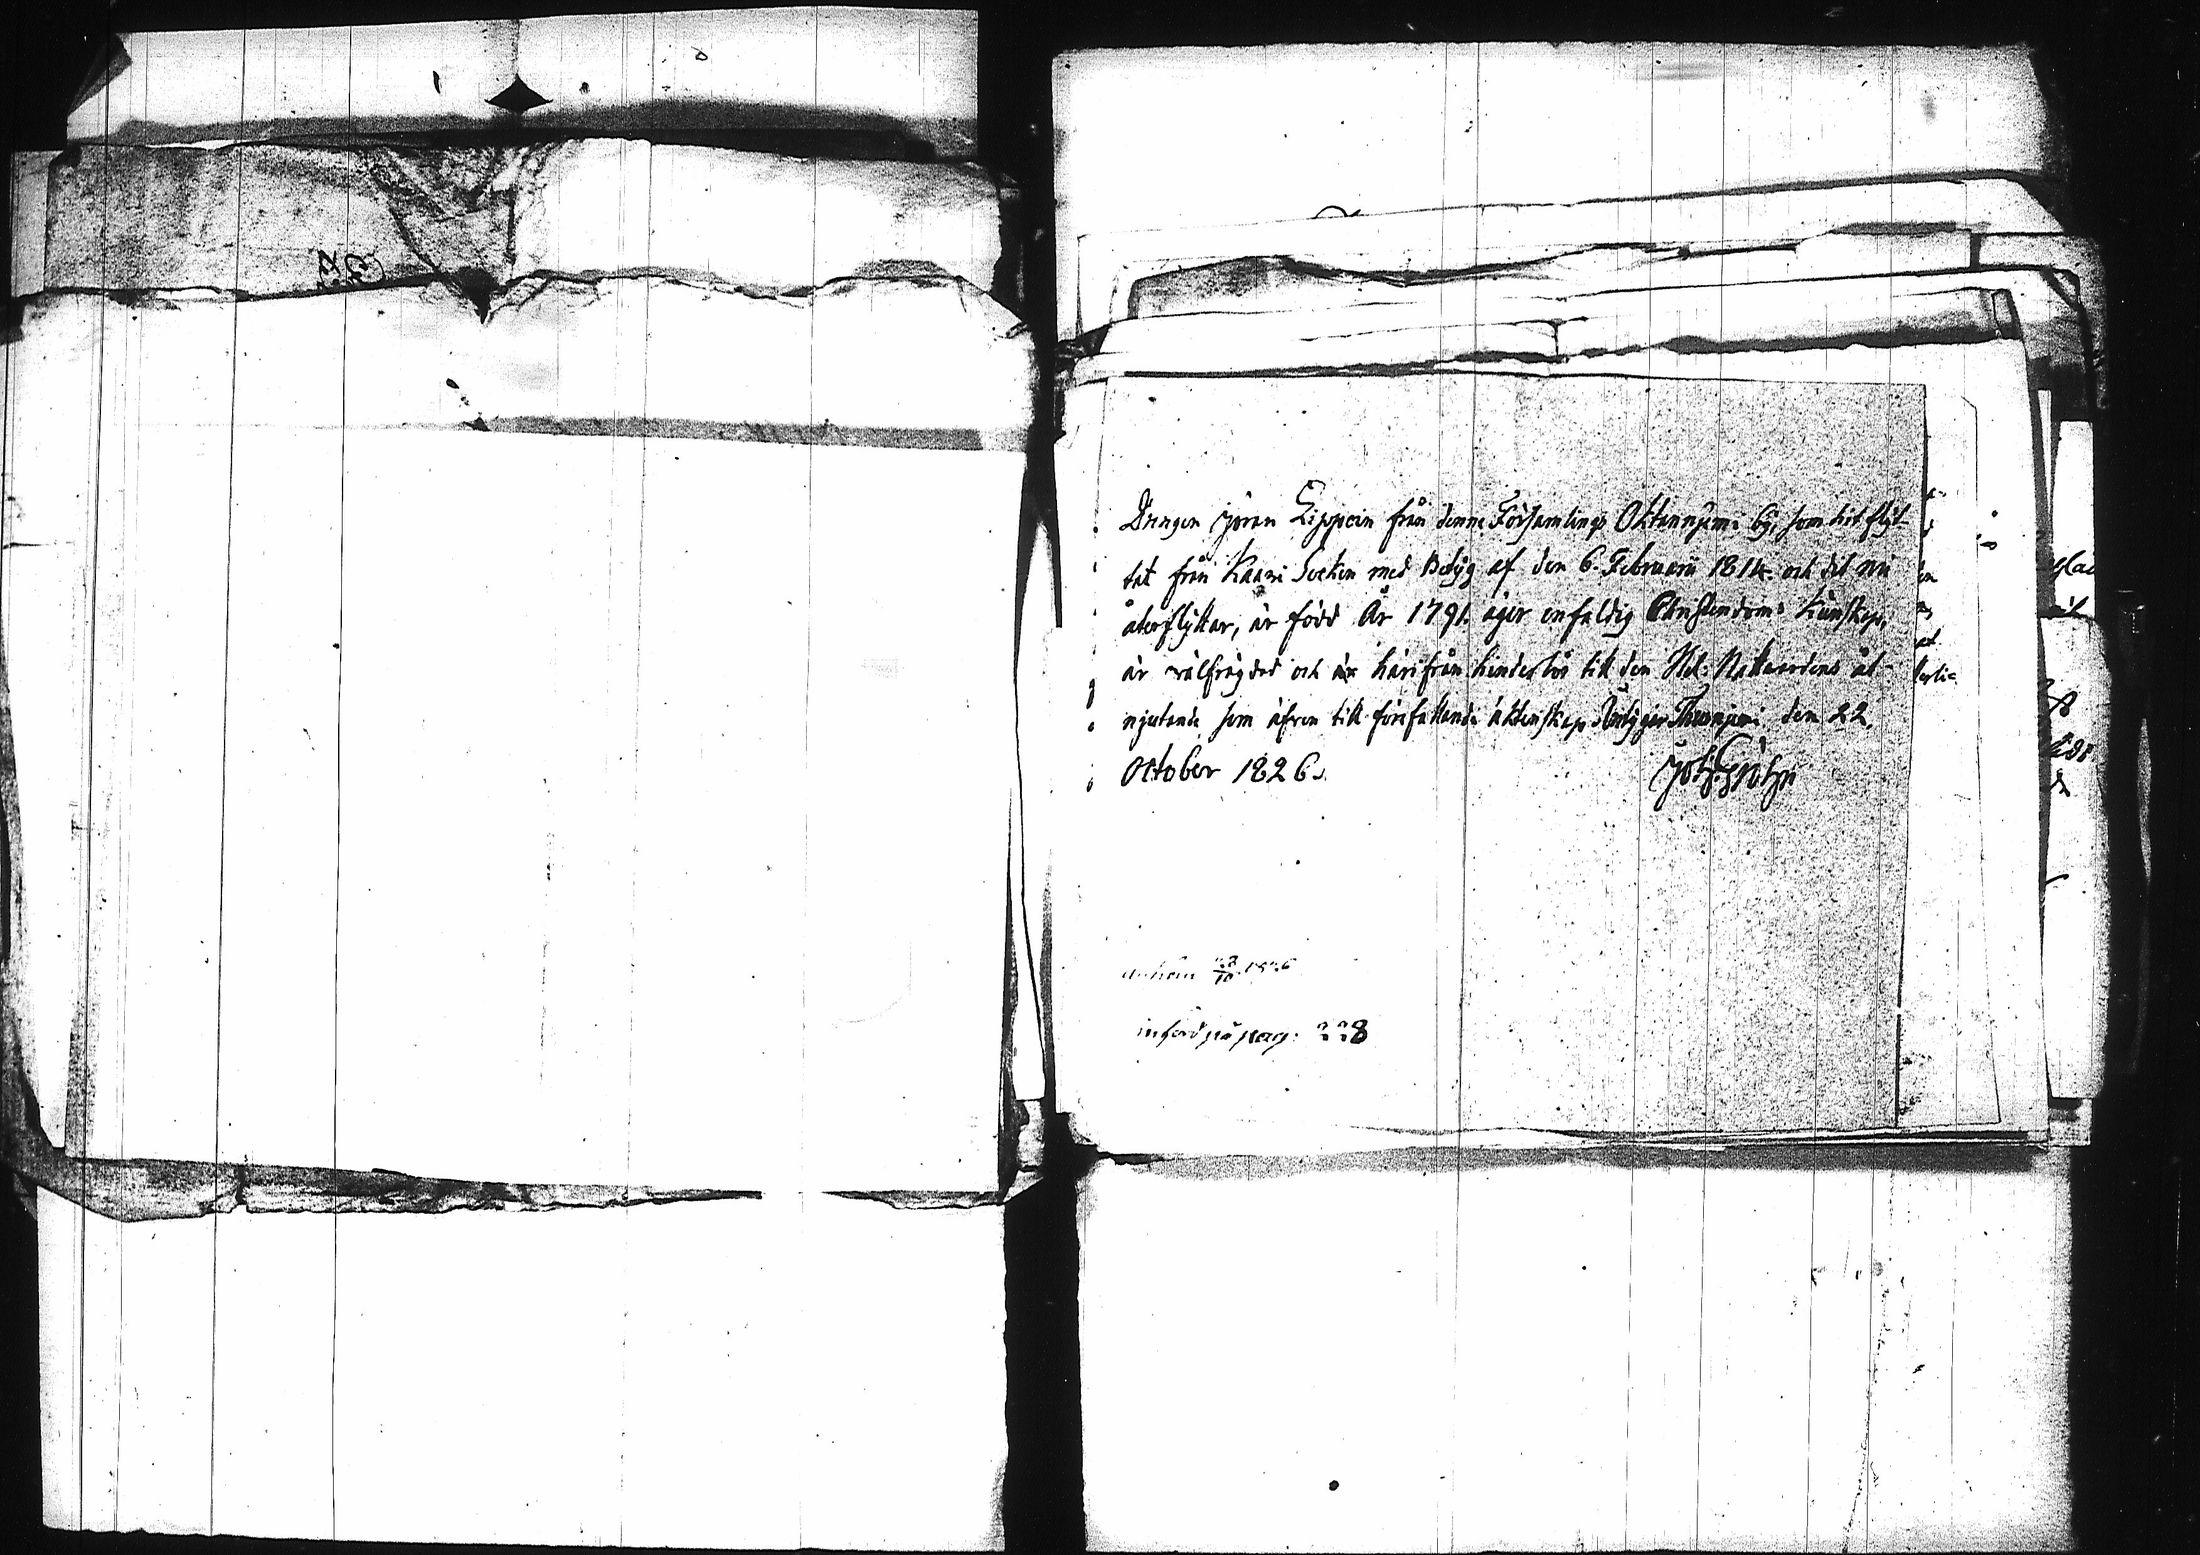 Drängen Jöran Lippoin från denne Församlings Oktannjemi by, som hit flyt-
tat från Kaavi Socken med Betyg af den 6. Februarii 1814. och dit nu
återflyttar, är född År 1791. äger enfaldig Christendoms Kunskap,
är välfrägdad och är härifrån hinderlös till den Hel. Nattvardens åt-
njutande som äfven till förefallande äktenskap
den 22.
October 1826.
ankom 28/10 1826
införd på pag: 228